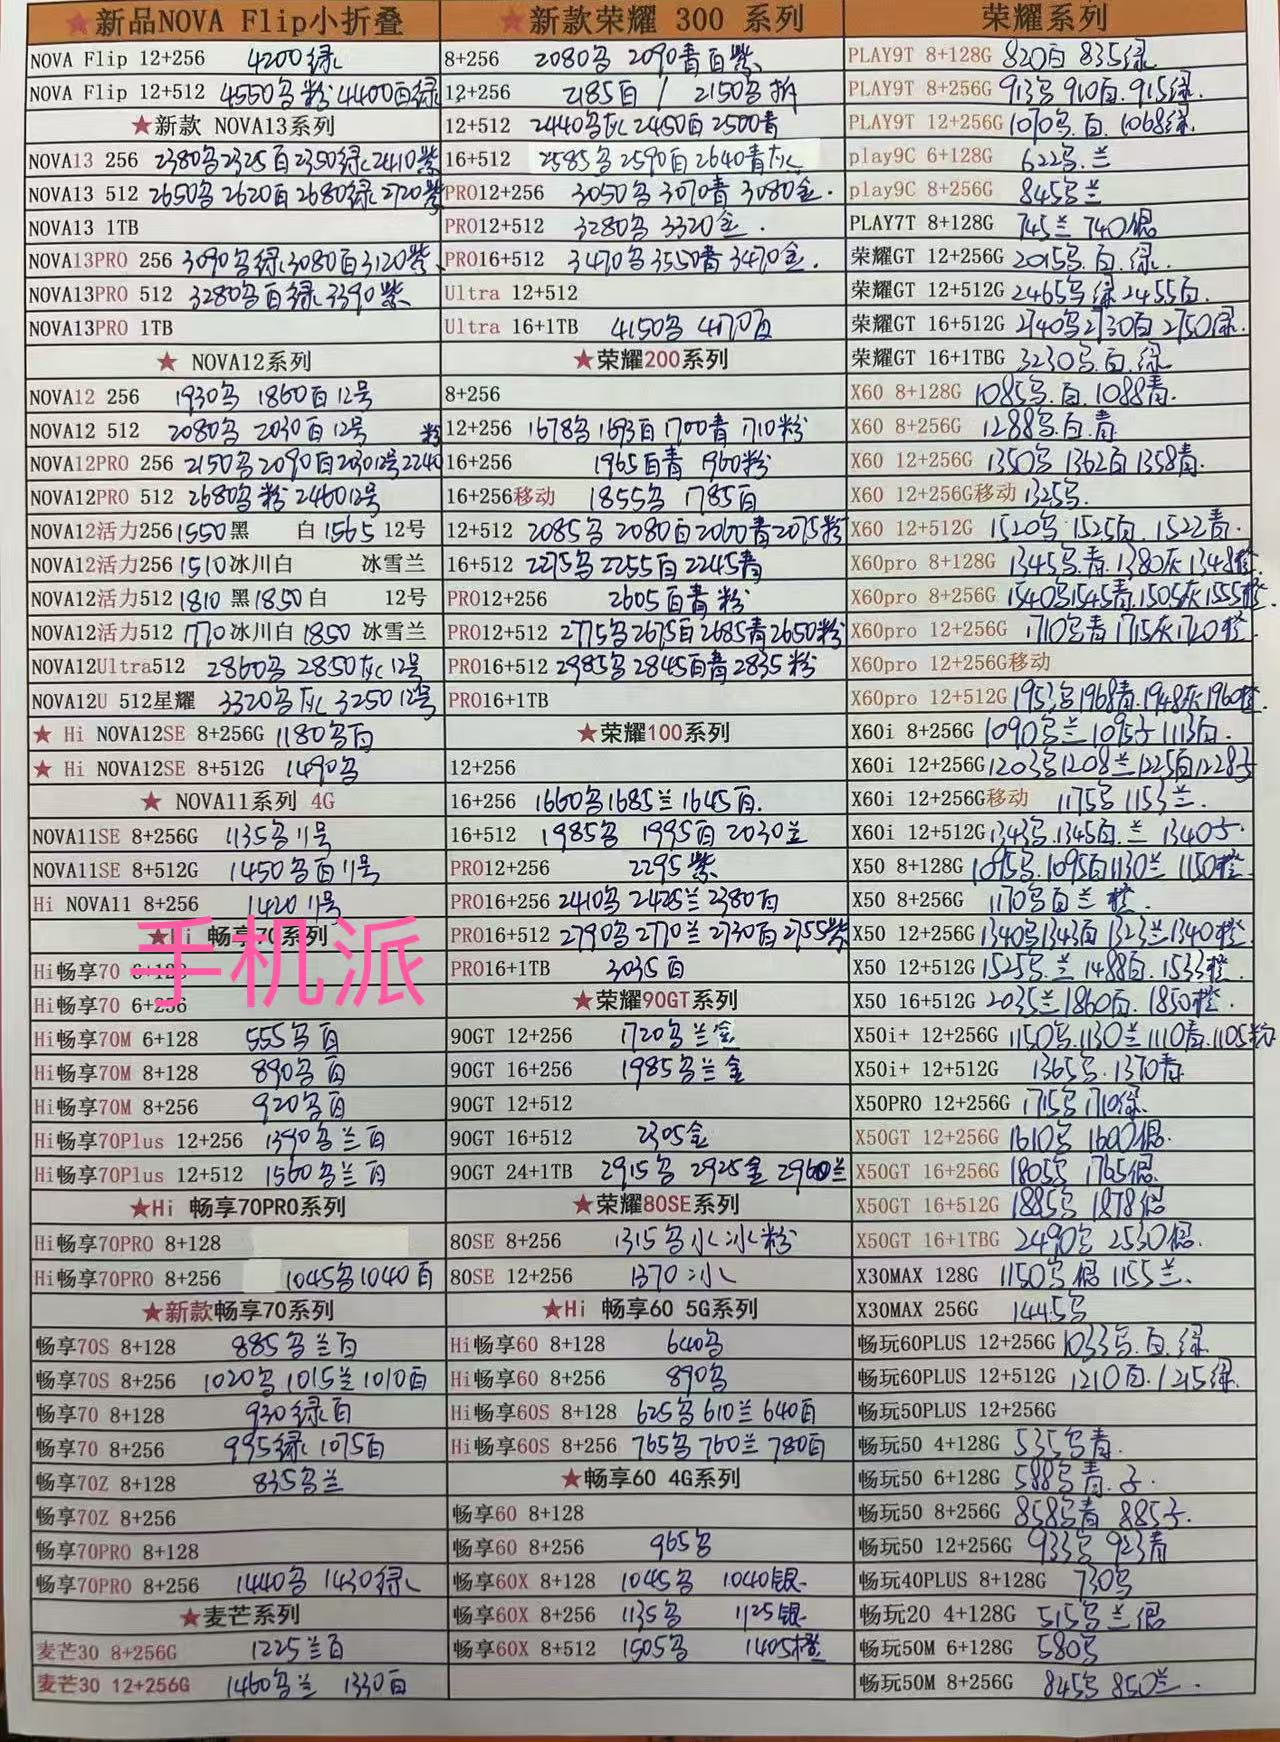 ★新品NOVA Flip小折叠
NOVA Flip 12+256 4200绿
NOVA Flip 12+512 4550乌粉4400百绿
★新款 NOVA13系列
NOVA13 256 2380乌2325百2350绿2410紫
NOVA13 512 2650乌2620百2680绿2720紫
NOVA13 1TB
NOVA13PRO 256 3090乌绿3080百3120紫
NOVA13PRO 512 3280乌百绿3390紫
NOVA13PRO 1TB
★ NOVA12系列
NOVA12 256 1930乌 1860百12号
NOVA12 512 2080乌 2030百12号
NOVA12PRO 256 2150乌2090百203012号2240粉
NOVA12PRO 512 2680乌粉246012号
NOVA12活力256 1550黑 白1565 12号
NOVA12活力256 1510冰川白 冰雪兰
NOVA12活力512 1810黑1850白 12号
NOVA12活力512 1770冰川白1850 冰雪兰
NOVA12Ultra512 2860乌2850灰12号
NOVA12U 512星耀 3320乌灰325012号
★ Hi NOVA12SE 8+256G 1180乌百
★ Hi NOVA12SE 8+512G 1490乌
★ NOVA11系列 4G
NOVA11SE 8+256G 1135乌11号
NOVA11SE 8+512G 1450乌百11号
Hi NOVA11 8+256 142011号
★Hi 畅享70系列
手机派
Hi畅享70 6+128
Hi畅享70 6+256
Hi畅享70M 6+128 555乌百
Hi畅享70M 8+128 890乌百
Hi畅享70M 8+256 920乌百
Hi畅享70Plus 12+256 1390乌兰百
Hi畅享70Plus 12+512 1560乌兰百
★Hi 畅享70PRO系列
Hi畅享70PRO 8+128
Hi畅享70PRO 8+256 1045乌1040百
★新款畅享70系列
畅享70S 8+128 885乌兰百
畅享70S 8+256 1020乌1015兰1010百
畅享70 8+128 930绿百
畅享70 8+256 995绿1075百
畅享70Z 8+128 835乌兰
畅享70Z 8+256
畅享70PRO 8+128
畅享70PRO 8+256 1440乌1430绿
★麦芒系列
麦芒30 8+256G 1225兰百
麦芒30 12+256G 1460乌兰 1330百
★新款荣耀 300 系列
8+256 2080乌 2090青百紫
12+256 2185百 / 2150乌
12+512 2440乌灰2450百2500青
16+512 2585乌2590百2640青灰
PRO12+256 3050乌3070青3080金.
PRO12+512 3280乌3320金.
PRO16+512 3470乌3550青3470金.
Ultra 12+512
Ultra 16+1TB 4150乌 4170百
★荣耀200系列
8+256
12+256 1678乌1693百1700青1710粉
16+256 1965百青 1960粉
16+256移动 1855乌 1785百
12+512 2085乌2080百2060青2075粉
16+512 2275乌2255百2245青
PRO12+256 2605百青粉
PRO12+512 2775乌2675百2685青2650粉
PRO16+512 2985乌2845百青2835粉
PRO16+1TB
★荣耀100系列
12+256
16+256 1660乌1685兰1645百.
16+512 1985乌 1995百2030兰
PRO12+256 2295紫
PRO16+256 2410乌2425兰2380百
PRO16+512 2790乌2770兰2730百2755紫
PRO16+1TB 3035百
★荣耀90GT系列
90GT 12+256 1720乌兰金
90GT 16+256 1985乌兰金
90GT 12+512
90GT 16+512 2305金
90GT 24+1TB 2915乌 2925金2960兰
★荣耀80SE系列
80SE 8+256 1315乌水冰粉
80SE 12+256 1370冰
★Hi 畅享60 5G系列
Hi畅享60 8+128 640乌
Hi畅享60 8+256 890乌
Hi畅享60S 8+128 625乌610兰640百
Hi畅享60S 8+256 765乌760兰780百
★畅享60 4G系列
畅享60 8+128
畅享60 8+256 965乌
畅享60X 8+128 1045乌 1040银
畅享60X 8+256 1135乌 1125银
畅享60X 8+512 1505乌 1405橙
荣耀系列
PLAY9T 8+128G 820百835绿
PLAY9T 8+256G 913乌910百.915绿
PLAY9T 12+256G 1070乌.百.1068绿
play9C 6+128G 622乌.兰
play9C 8+256G 845乌兰
PLAY7T 8+128G 745兰740银
荣耀GT 12+256G 2015乌.百.绿.
荣耀GT 12+512G 2465乌绿2455百.
荣耀GT 16+512G 2740乌2730百2750绿.
荣耀GT 16+1TBG 3230乌.百.绿
X60 8+128G 1085乌.百.1088青.
X60 8+256G 1288乌.百.青
X60 12+256G 1350乌1362百1358青.
X60 12+256G移动 1325乌.
X60 12+512G 1520乌1525百.1522青.
X60pro 8+128G 1345乌.青.1380灰1348橙.
X60pro 8+256G 1540乌1545青.1505灰1555橙.
X60pro 12+256G 1710乌青1715灰1720橙.
X60pro 12+256G移动
X60pro 12+512G 1953乌1968青.1948灰1960橙.
X60i 8+256G 1090乌兰1095子1113百.
X60i 12+256G 1203乌1208兰1225百1228子
X60i 12+256G移动 1175乌1153兰.
X60i 12+512G 1343乌.1345百.兰 1340子.
X50 8+128G 1095乌.1095百1130兰 1150橙.
X50 8+256G 1170乌百兰 橙.
X50 12+256G 1340乌1343百1323兰1340橙.
X50 12+512G 1525乌.兰1488百.1533橙.
X50 16+512G 2035兰1860百.1850橙.
X50i+ 12+256G 1150乌.1130兰1110青.1105粉
X50i+ 12+512G 1365乌.1370青
X50PRO 12+256G 1715乌1710绿.
X50GT 12+256G 1610乌 1600银.
X50GT 16+256G 1805乌 1765银.
X50GT 16+512G 1885乌 1878银
X50GT 16+1TBG 2490乌2530银.
X30MAX 128G 1150乌银1155兰.
X30MAX 256G 1445乌
畅玩60PLUS 12+256G 1033乌.百.绿
畅玩60PLUS 12+512G 1210百.1215绿.
畅玩50PLUS 12+256G
畅玩50 4+128G 535乌青.
畅玩50 6+128G 588乌青.子.
畅玩50 8+256G 858乌青 885子.
畅玩50 12+256G 933乌 923青
畅玩40PLUS 8+128G 730乌
畅玩20 4+128G 515乌兰银
畅玩50M 6+128G 580乌
畅玩50M 8+256G 845乌 850兰.